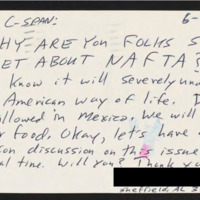 C-SPAN: 6-
WHY ARE YOU FOLKS S
ET ABOUT NAFTA?
Know it will severely un
American way of life. I
llowed in Mexico, we will
r food. Okay, let's have a
on discussion on this issue
al time. Will you? Thank you
Sheffield, AL